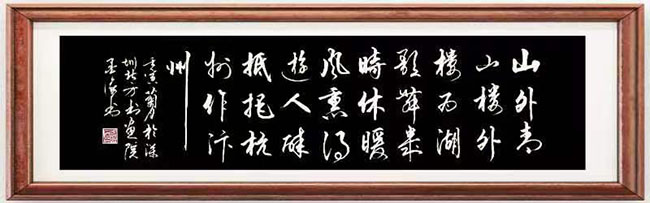 山外青
山楼外
楼西湖
歌舞幾
時休暖
風熏得
遊人醉
抵把杭
州作汴
州
壬寅月於深
圳北方书画院
王书